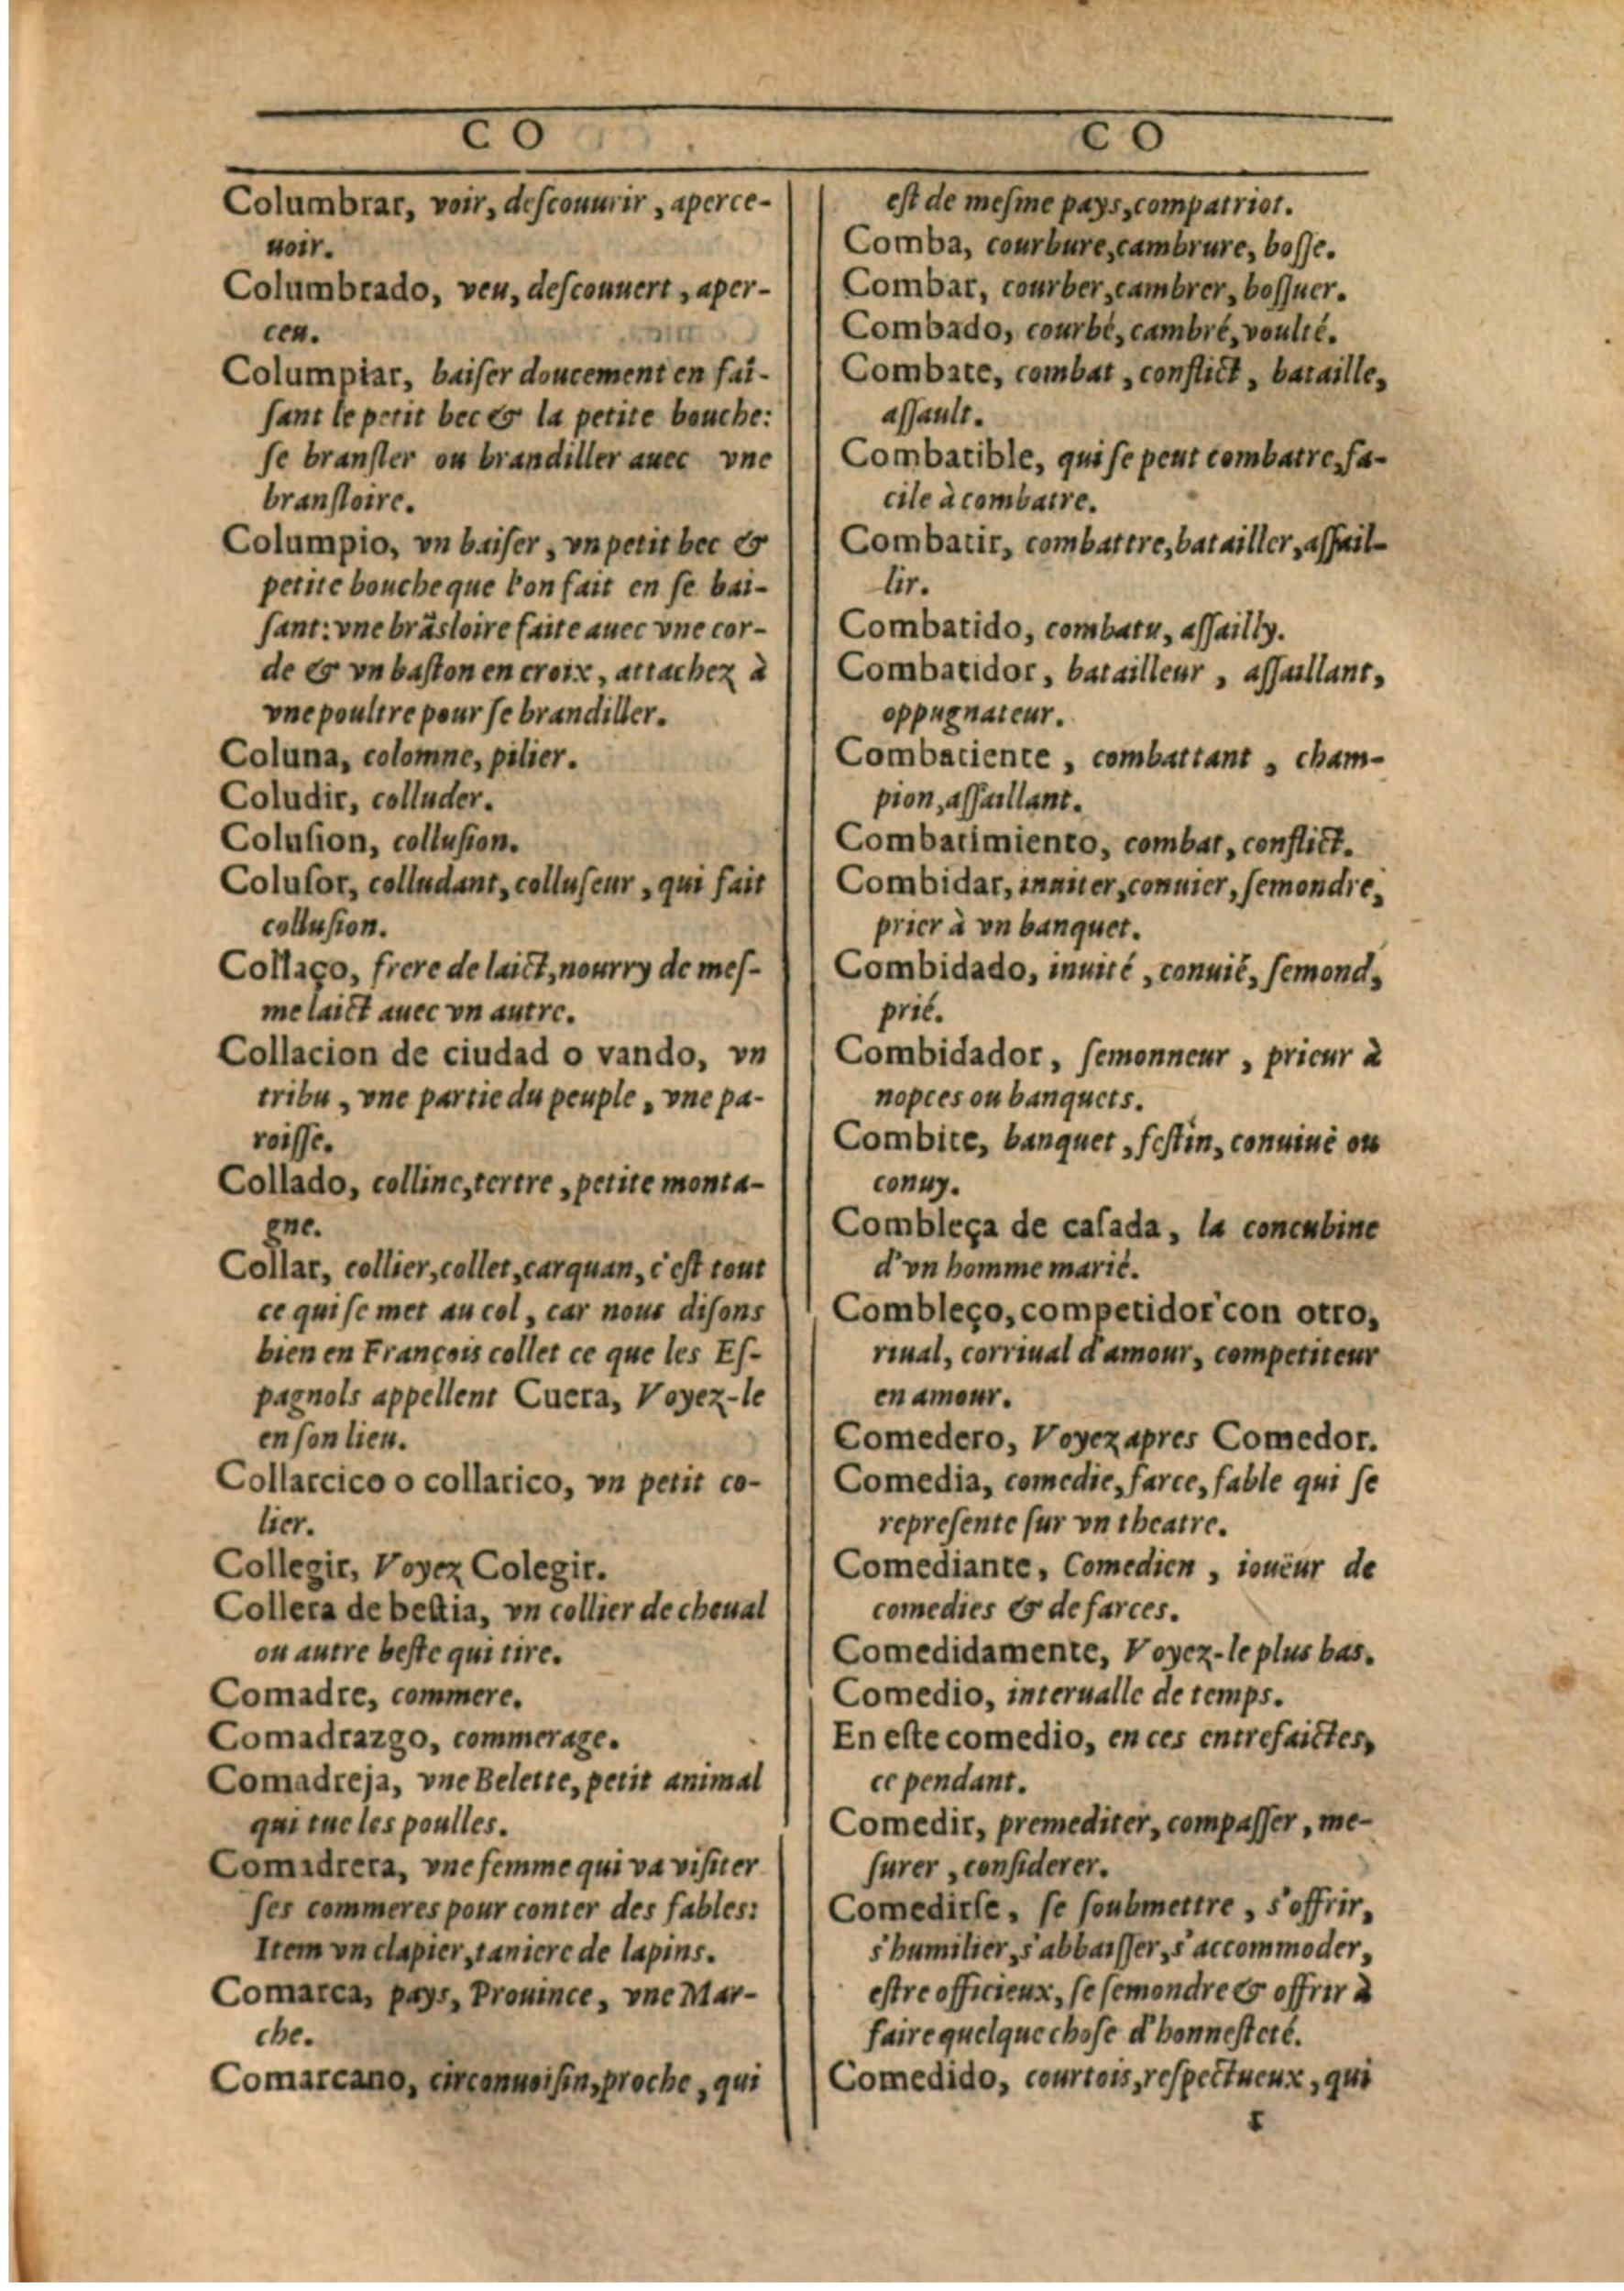 C O
Columbrar, voir, deſcouurir, aperce-
uoir.
Columbrado, veu, deſcouuert, aper-
ceu.
Columpiar, baiſer doucement en fai-
ſant le petit bec & la petite bouche:
ſe branſler ou brandiller auec vne
branſloire.
Columpio, vn baiſer, vn petit bec &
petite bouche que l'on fait en ſe bai-
ſant: vne brãsloire faite auec vne cor-
de & vn baſton en croix, attachez à
vne poultre pour ſe brandiller.
Coluna, colomne, pilier.
Coludir, colluder.
Coluſion, colluſion.
Coluſor, colludant, colluſeur, qui fait
colluſion.
Collaço, frere de laict, nourry de meſ-
me laict auec vn autre.
Collacion de ciudad o vando, vn
tribu, vne partie du peuple, vne pa-
roiſſe.
Collado, colline, tertre, petite monta-
gne.
Collar, collier, collet, carquan, c'eſt tout
ce qui ſe met au col, car nous diſons
bien en François collet ce que les Eſ-
pagnols appellent Cuera, Voyez-le
en ſon lieu.
Collarcico o collarico, vn petit co-
lier.
Collegir, Voyez Colegir.
Collera de beſtia, vn collier de cheual
ou autre beſte qui tire.
Comadre, commere.
Comadrazgo, commerage.
Comadreja, vne Belette, petit animal
qui tue les poulles.
Comadrera, vne femme qui va viſiter
ſes commeres pour conter des fables:
Item vn clapier, taniere de lapins.
Comarca, pays, Prouince, vne Mar-
che.
Comarcano, circonuoiſin, proche, qui
C O
eſt de meſme pays, compatriot.
Comba, courbure, cambrure, boſſe.
Combar, courber, cambrer, boſſuer.
Combado, courbé, cambré, voulté.
Combate, combat, conflict, bataille,
aſſault.
Combatible, qui ſe peut combatre, fa-
cile à combatre.
Combatir, combattre, batailler, aſſail-
lir.
Combatido, combatu, aſſailly.
Combatidor, batailleur, aſſaillant,
oppugnateur.
Combatiente, combattant, cham-
pion, aſſaillant.
Combatimiento, combat, conflict.
Combidar, inuiter, conuier, ſemondre,
prier à vn banquet.
Combidado, inuité, conuié, ſemond,
prié.
Combidador, ſemonneur, prieur à
nopces ou banquets.
Combite, banquet, feſtin, conuiué ou
conuy.
Combleça de caſada, la concubine
d'vn homme marié.
Combleço, competidor con otro,
riual, corriual d'amour, competiteur
en amour.
Comedero, Voyez apres Comedor.
Comedia, comedie, farce, fable qui ſe
repreſente ſur vn theatre.
Comediante, Comedien, ioüeur de
comedies & de farces.
Comedidamente, Voyez-le plus bas.
Comedio, interualle de temps.
En eſte comedio, en ces entrefaictes,
ce pendant.
Comedir, premediter, compaſſer, me-
ſurer, conſiderer.
Comedirſe, ſe ſoubmettre, s'offrir,
s'humilier, s'abbaiſſer, s'accommoder,
eſtre officieux, ſe ſemondre & offrir à
faire quelque choſe d'honneſteté.
Comedido, courtois, reſpectueux, qui